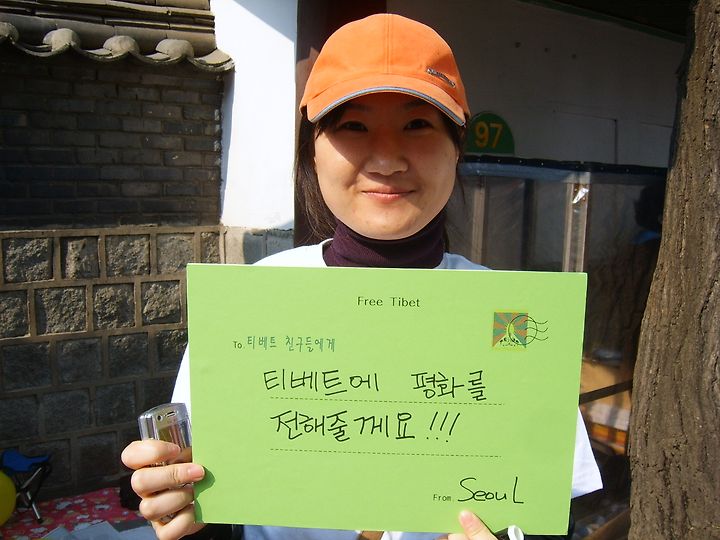 97
Free Tibet
To. 티베트 친구들에게
티베트에 평화를
전해줄게요!!!
From. SeouL